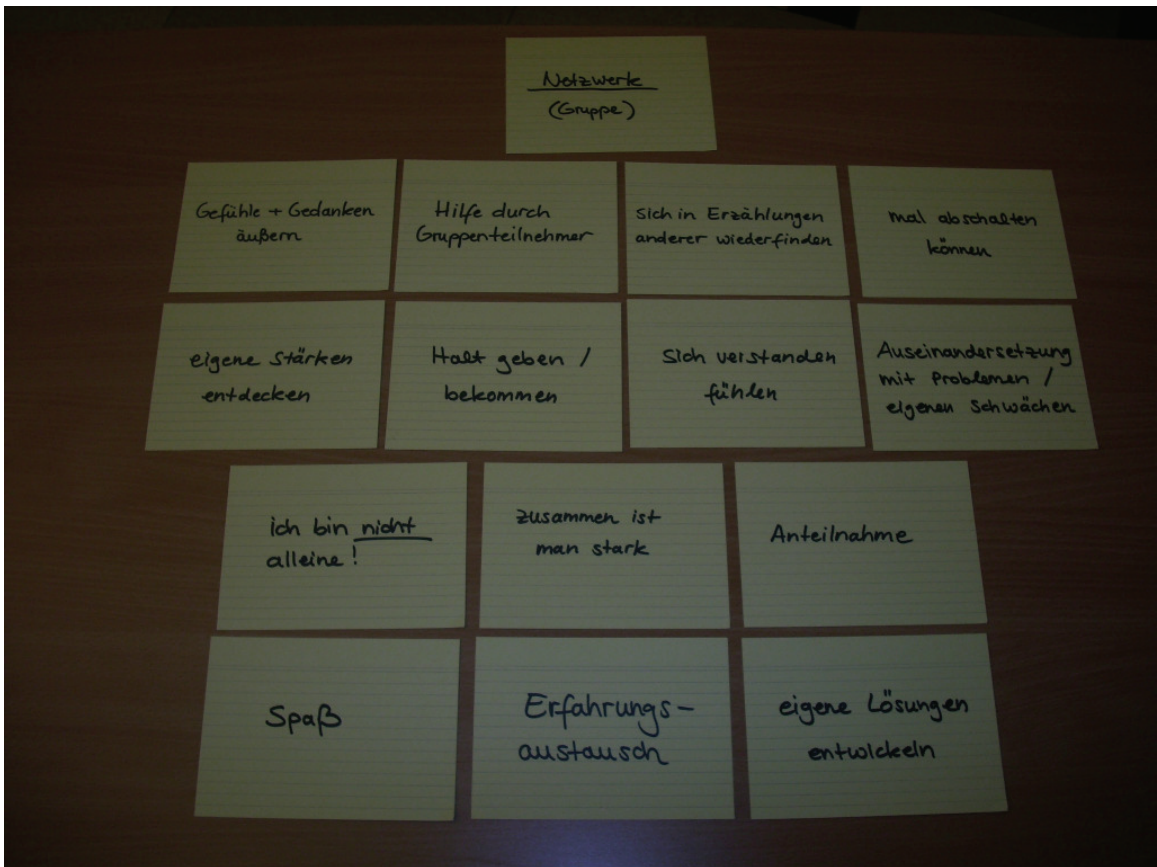 Netzwerke
(Gruppe)
Gefühle + Gedanken
äußern
Hilfe durch
Gruppenteilnehmer
sich in Erzählungen
anderer wiederfinden
mal abschalten
können
eigene Stärken
entdecken
Halt geben /
bekommen
Sich verstanden
fühlen
Auseinandersetzung
mit Problemen /
eigenen Schwächen
ich bin nicht
alleine !
zusammen ist
man stark
Anteilnahme
Spaß
Erfahrungs-
austausch
eigene Lösungen
entwickeln